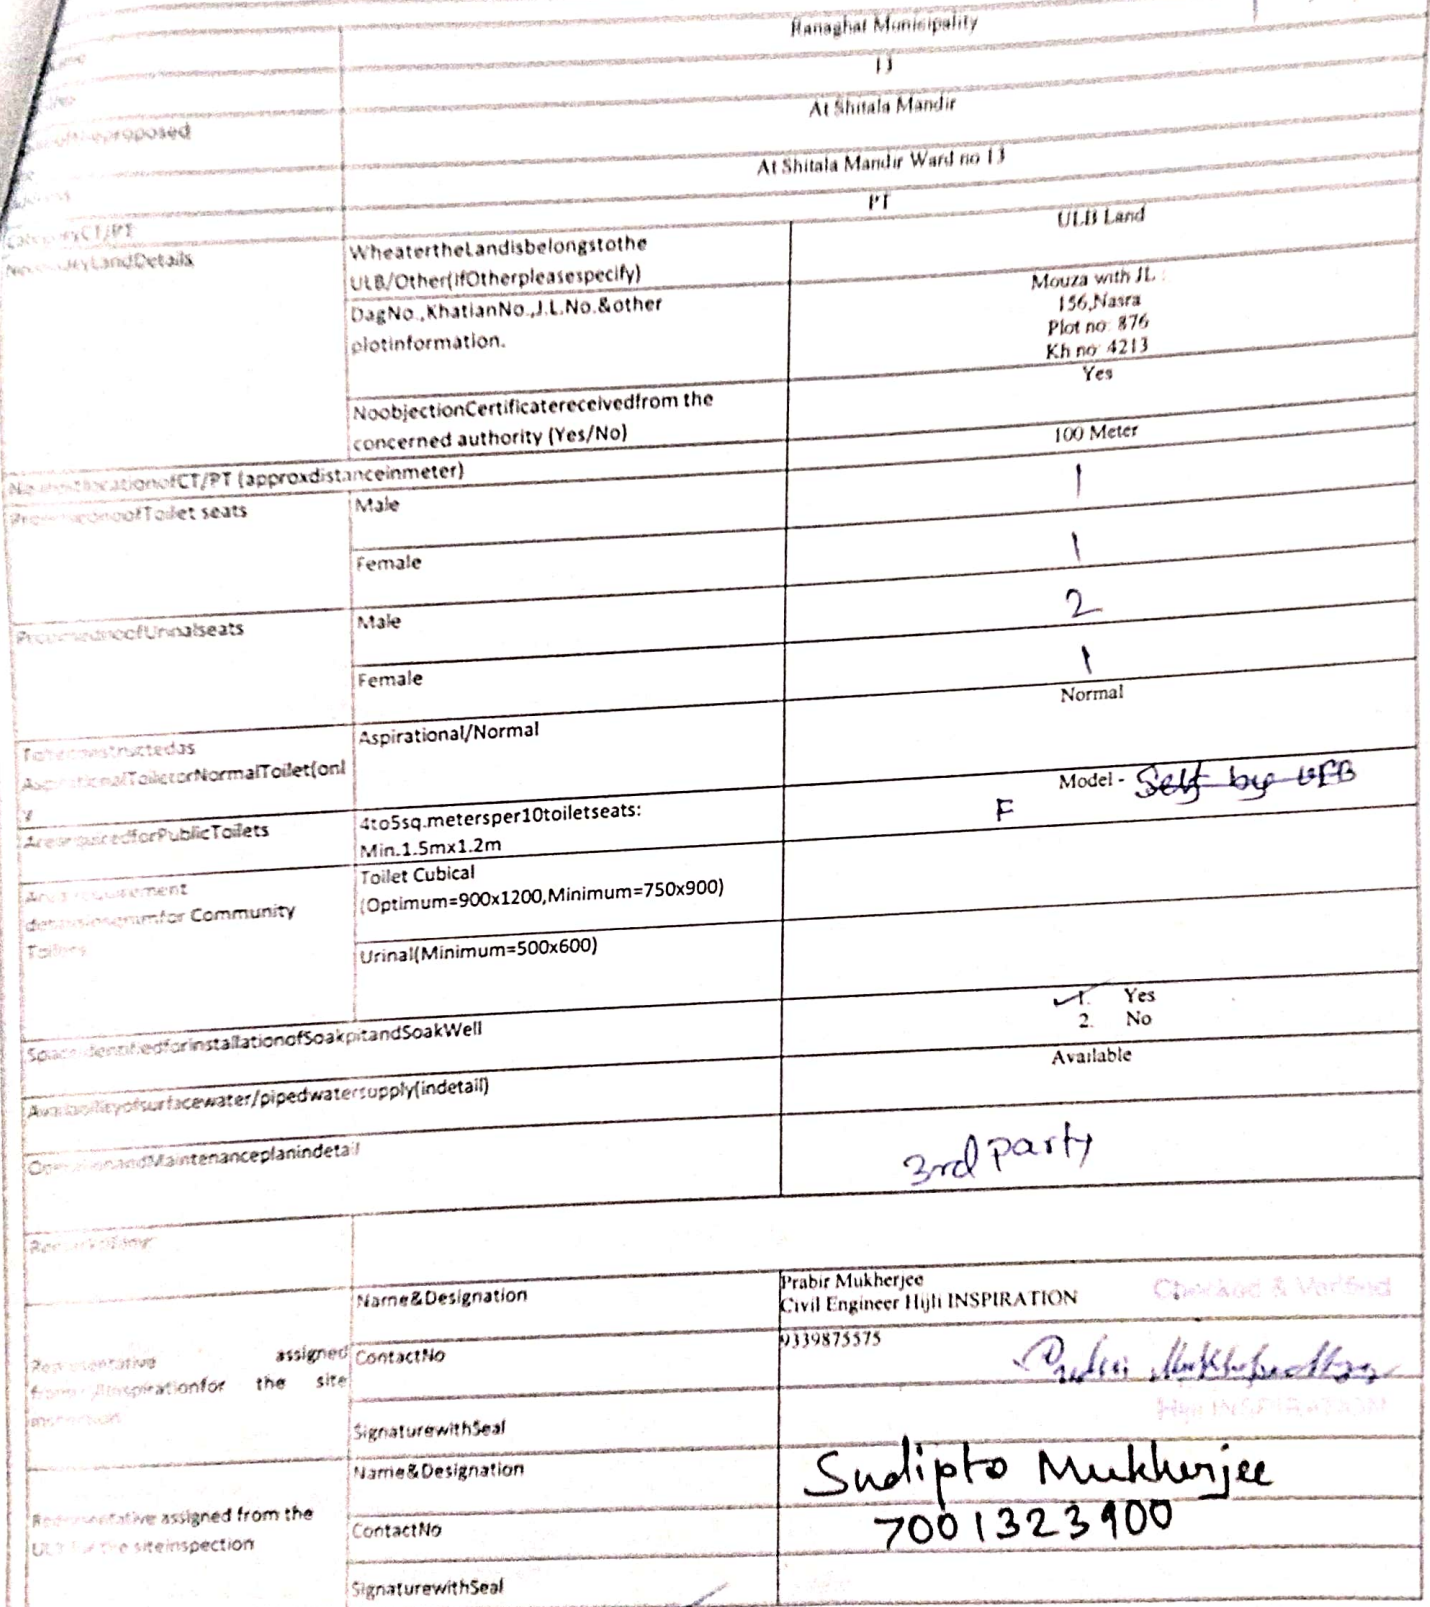 Ranaghat Municipality
13
At Shitala Mandir
At Shitala Mandir Ward no 13
PT
LandDetails
WheatertheLandisbelongstothe
ULB/Other(ifOtherpleasespecify)
ULB Land
DagNo.,KhatianNo.,J.L.No.&other
plotinformation.
Mouza with JL :
156,Nasra
Plot no: 876
Kh no: 4213
NoobjectionCertificatereceivedfrom the
concerned authority (Yes/No)
Yes
locationofCT/PT (approxdistanceinmeter)
100 Meter
noofToilet seats
Male
1
Female
1
noofUrinalseats
Male
2
Female
1
Tobeconstructedas
AspirationalToiletorNormalToilet(onl
y
Aspirational/Normal
Normal
ArearequiredforPublicToilets
4to5sq.metersper10toiletseats:
Min.1.5mx1.2m
Model - Self by ULB
F
Area requirement
for Community
Toilets
Toilet Cubical
(Optimum=900x1200,Minimum=750x900)
Urinal(Minimum=500x600)
SpaceidentifiedforinstallationofSoakpitandSoakWell
1. Yes
2. No
Availabilityofsurfacewater/pipedwatersupply(indetail)
Available
OperationandMaintenanceplanindetail
3rd party
Representative assigned
for the site
Name&Designation
Prabir Mukherjee
Civil Engineer Hijli INSPIRATION
Checked & Verified
ContactNo
9339875575
SignaturewithSeal
Hijli INSPIRATION
Representative assigned from the
ULB for the siteinspection
Name&Designation
Sudipto Mukherjee
ContactNo
7001323900
SignaturewithSeal